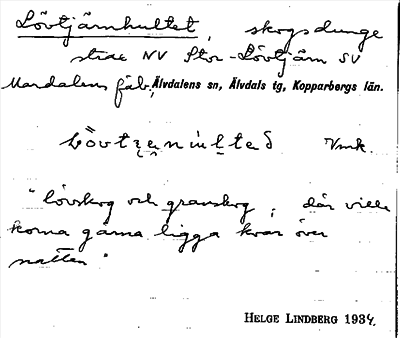 Lövtjärnhultet, skogsdunge
NV Stor-Lövtjärn SV
Mardalens fäb., Älvdalens sn, Älvdals tg, Kopparbergs län.
Vmk.
"lövskog och granskog, där ville
korna gärna ligga kvar över
natten"
HELGE LINDBERG 1934.